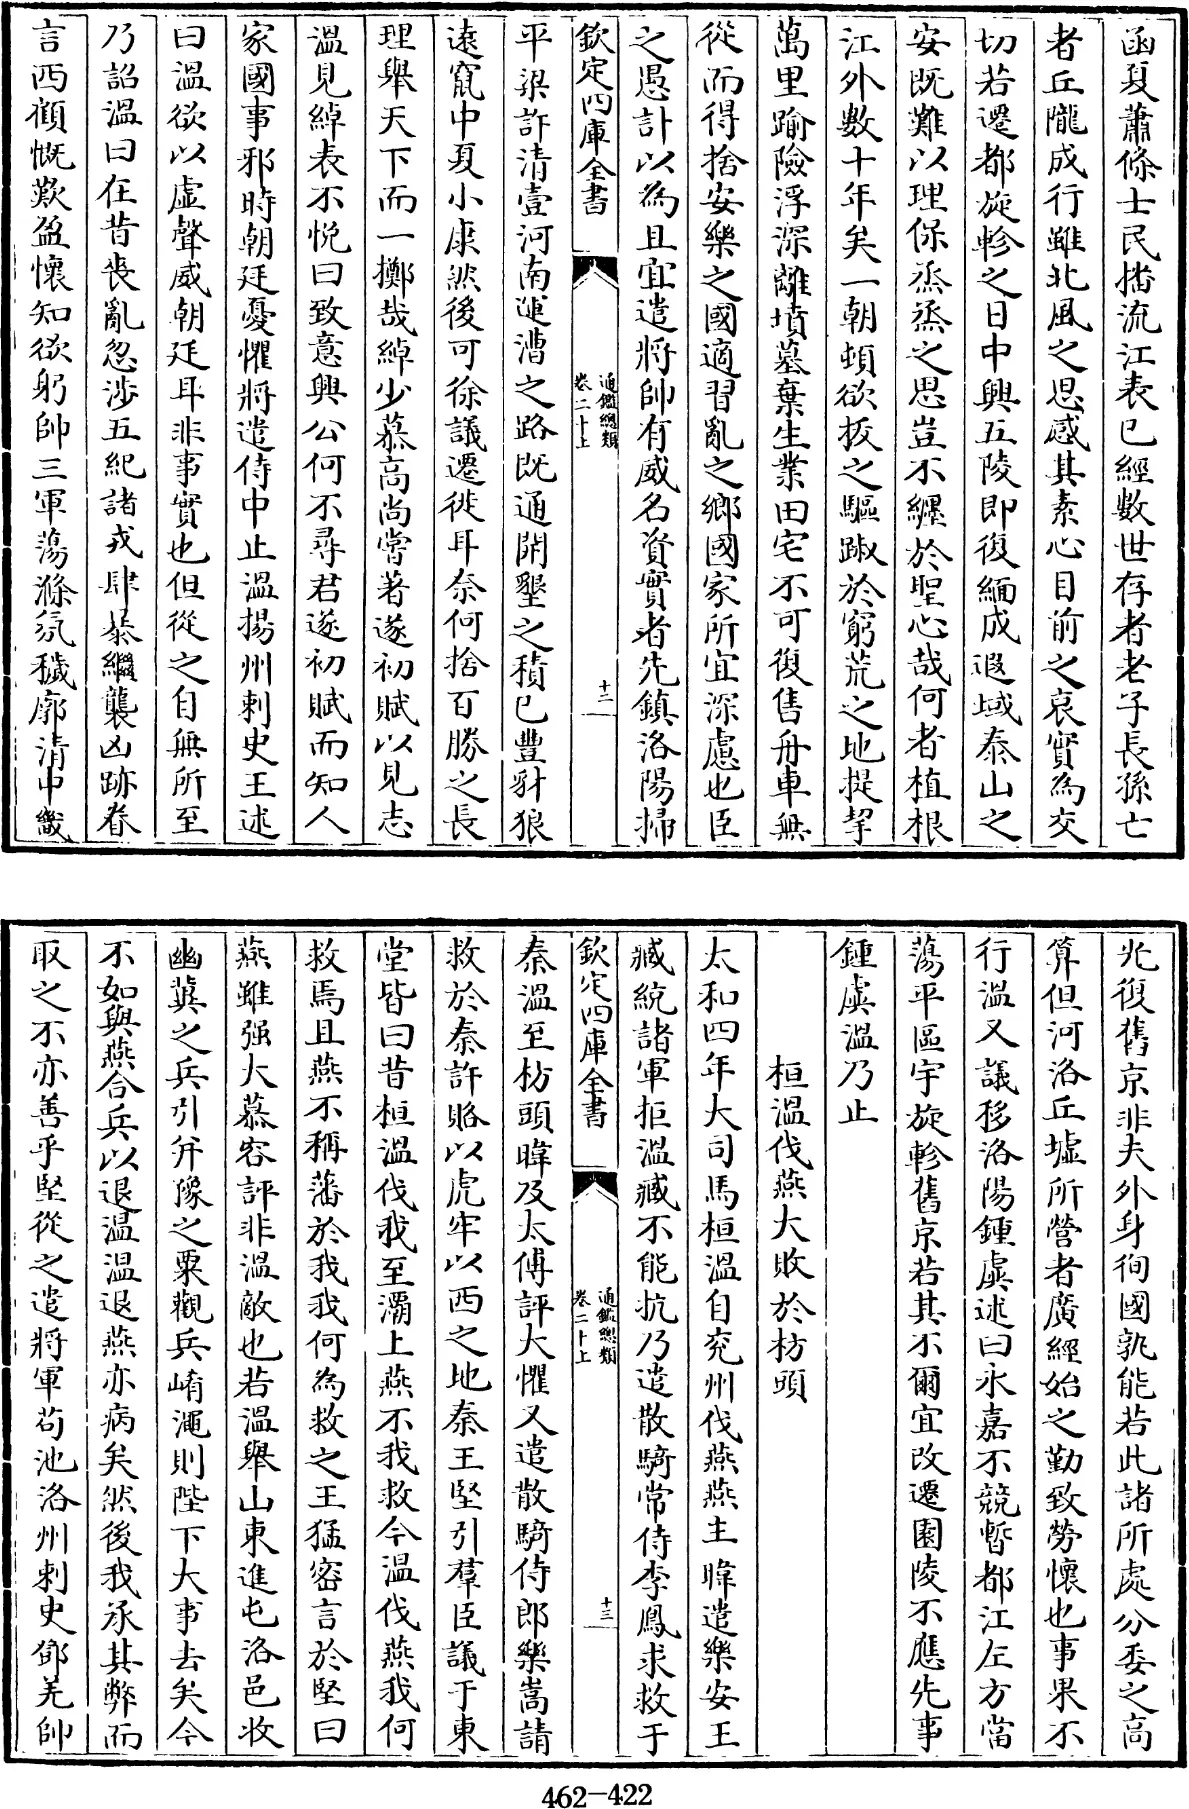 函夏蕭條士民播流江表已經數世存者老子長孫亡
者丘隴成行雖北風之思感其素心目前之哀實為交
切若遷都旋軫之日中興五陵即復緬成遐域泰山之
安既難以理保烝烝之思豈不纒於聖心哉何者植根
江外數十年矣一朝頓欲拔之驅踧於窮荒之地提挈
萬里踰險浮深離墳墓棄生業田宅不可復售舟車無
從而得捨安樂之國適習亂之鄉國家所宜深慮也臣
之愚計以為且宜遣將帥有威名資實者先鎮洛陽掃
欽定四庫全書
通鑑總類
卷二十上
十二
平梁許清壹河南運漕之路既通開墾之積已豐豺狼
遠竄中夏小康然後可徐議遷徙耳奈何捨百勝之長
理舉天下而一擲哉綽少慕高尚嘗著遂初賦以見志
溫見綽表不悅曰致意興公何不尋君遂初賦而知人
家國事邪時朝廷憂懼將遣侍中止溫揚州刺史王述
曰溫欲以虛聲威朝廷耳非事實也但從之自無所至
乃詔溫曰在昔喪亂忽涉五紀諸戎肆暴繼襲凶跡眷
言西顧慨歎盈懷知欲躬帥三軍蕩滌氛穢廓清中畿
光復舊京非夫外身徇國孰能若此諸所處分委之高
算但河洛丘墟所營者廣經始之勤致勞懷也事果不
行溫又議移洛陽鍾虡述曰永嘉不競暫都江左方當
蕩平區宇旋軫舊京若其不爾宜改遷園陵不應先事
鍾虡溫乃止
桓溫伐燕大敗於枋頭
太和四年大司馬桓溫自兖州伐燕燕主暐遣樂安王
臧統諸軍拒溫臧不能抗乃遣散騎常侍李鳳求救于
欽定四庫全書
通鑑總類
卷二十上
十三
秦溫至枋頭暐及太傅評大懼又遣散騎侍郎樂嵩請
救於秦許賂以虎牢以西之地秦王堅引羣臣議于東
堂皆曰昔桓溫伐我至灞上燕不我救今溫伐燕我何
救焉且燕不稱藩於我我何為救之王猛密言於堅曰
燕雖强大慕容評非溫敵也若溫舉山東進屯洛邑收
幽冀之兵引并豫之粟觀兵崤澠則陛下大事去矣今
不如與燕合兵以退溫溫退燕亦病矣然後我承其弊而
取之不亦善乎堅從之遣將軍苟池洛州刺史鄧羌帥
462-422